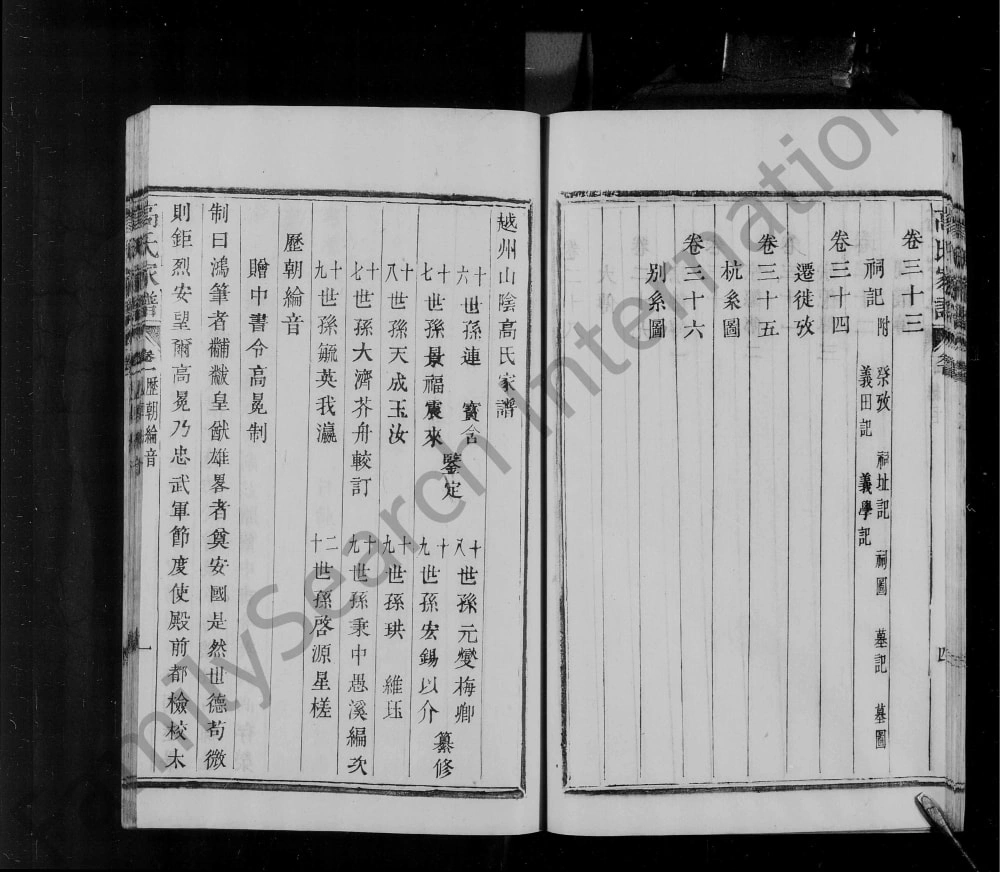 卷三十三
祠記附 祭攷 祠址記 祠圖 墓記 墓圖
義田記 義學記
卷三十四
遷徙攷
卷三十五
杭系圖
卷三十六
别系圖
高氏家譜
四
越州山陰高氏家譜
十六世孫連 寶含
十七世孫景福震來 鑒定
十八世孫天成玉汝
十七世孫大濟芥舟較訂
十九世孫毓英我瀛
十八世孫元燮梅卿
十九世孫宏錫以介 纂修
十九世孫珙 維珏
十九世孫秉中愚溪編次
二十世孫啓源星槎
歷朝綸音
贈中書令高晃制
制曰鴻筆者黼黻皇猷雄畧者奠安國是然世德苟微
則鉅烈安望爾高晃乃忠武軍節度使殿前都檢校太
高氏家譜 卷一 歷朝綸音 一
FamilySearch International